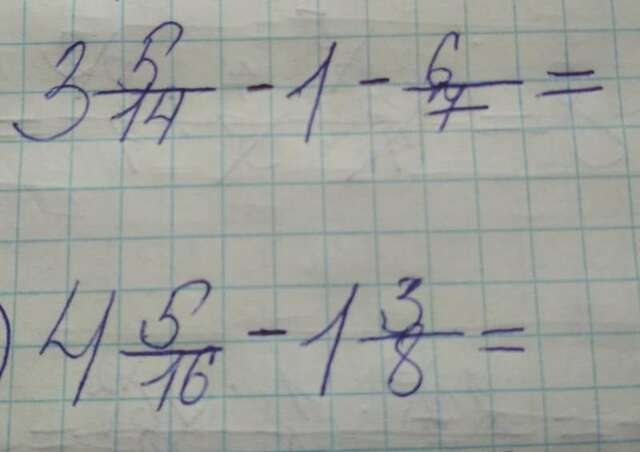 3 5/14 - 1 - 6/7 =
) 4 5/16 - 1 3/8 =